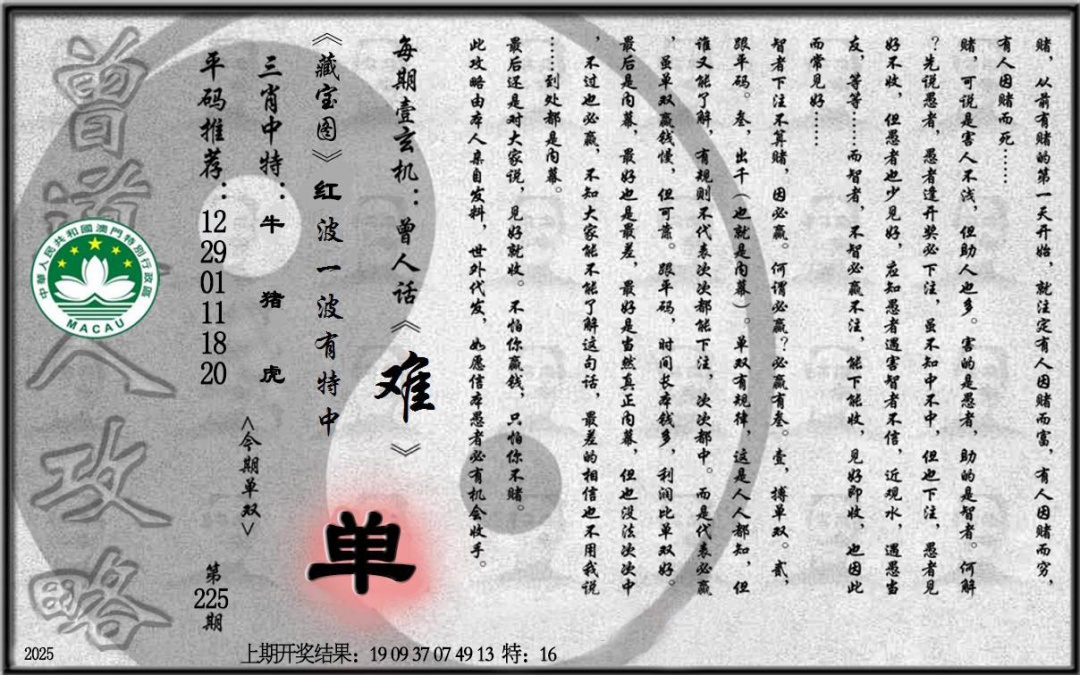 赌，从前有赌的第一天开始，就注定有人因赌而富，有人因赌而穷，
有人因赌而死……
赌，可说是害人不浅，但助人也多。害的是愚者，助的是智者。何解
？先说愚者，愚者逢开奖必下注，虽不知中不中，但也下注，愚者见
好不收，但愚者也少见好，应知愚者遇害智者不信，近观水，遇愚当
友，等等……而智者，不智必赢不注，能下能收，见好即收，也因此
而常见好……
智者下注不算赌，因必赢。何谓必赢？必赢有叁。壹，搏单双。贰，
跟平码。叁，出千（也就是内幕）。单双有规律，这是人人都知，但
谁又能了解，有规则不代表次次都能下注，次次都中。而是代表必赢
，虽单双赢钱慢，但可靠。跟平码，时间长本钱多，利润比单双好。
最后是内幕，最好也是最差，最好是当然真正内幕，但也没法次次中
，不过也必赢，不知大家能不能了解这句话，最差的相信也不用我说
……到处都是内幕。
最后还是对大家说，见好就收。不怕你赢钱，只怕你不赌。
此攻略由本人亲自发料，世外代发，如愿信本愚者必有机会收手。
每期壹玄机：曾人话《难》
《藏宝图》红波一波有特中
单
三肖中特：牛 猪 虎
<今期单双>
平码推荐：12 29 01 11 18 20
第225期
曾道人攻略
中華人民共和國澳門特別行政區
MACAU
2025
上期开奖结果：19 09 37 07 49 13 特：16